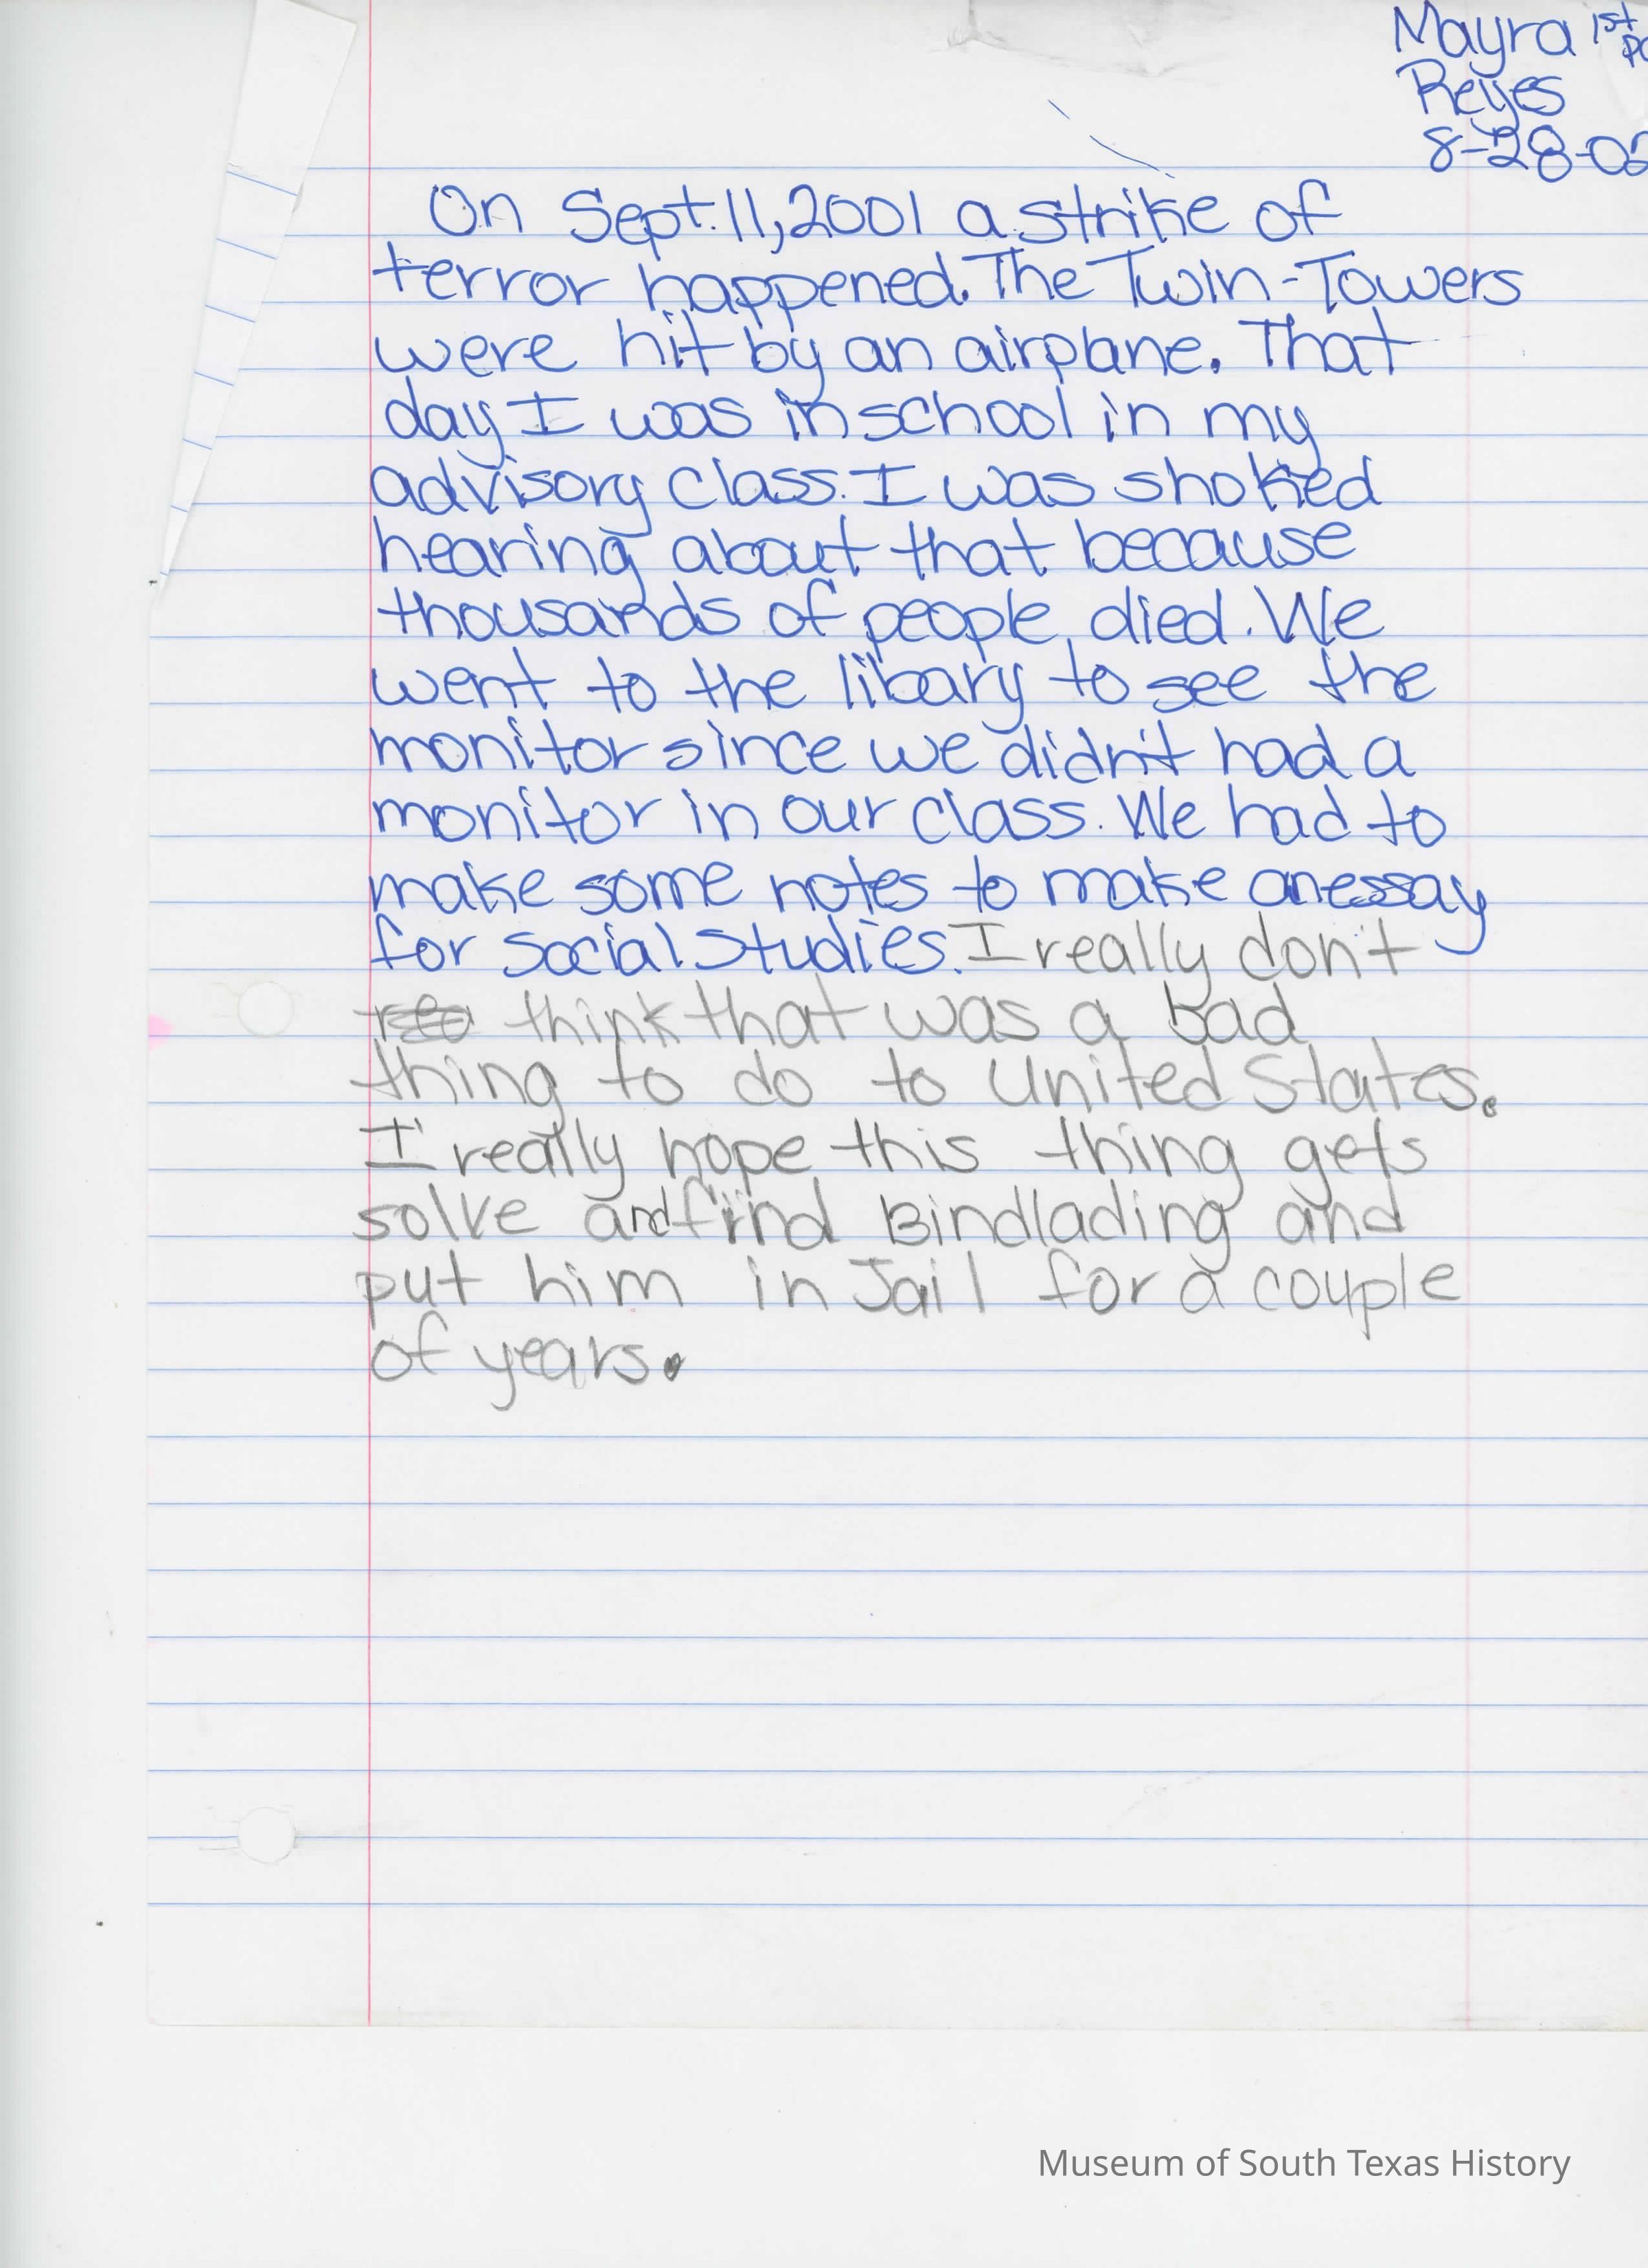 Mayra 1st
Reyes
8-28-02
On Sept. 11, 2001 a strike of
terror happened. The Twin-Towers
were hit by an airplane. That
day I was in school in my
advisory class. I was shoked
hearing about that because
thousands of people died. We
went to the libary to see the
monitor since we didn't had a
monitor in our class. We had to
make some notes to make an essay
for Social Studies. I really don't
think that was a bad
thing to do to United States.
I really hope this thing gets
solve and find Bindlading and
put him in Jail for a couple
of years.
Museum of South Texas History